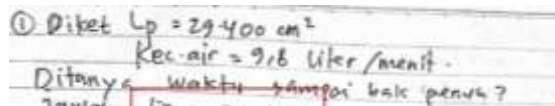 ① Diket Lp = 29400 cm²
Kec. air = 9,8 liter/menit.
Ditanya waktu sampai bak penuh?